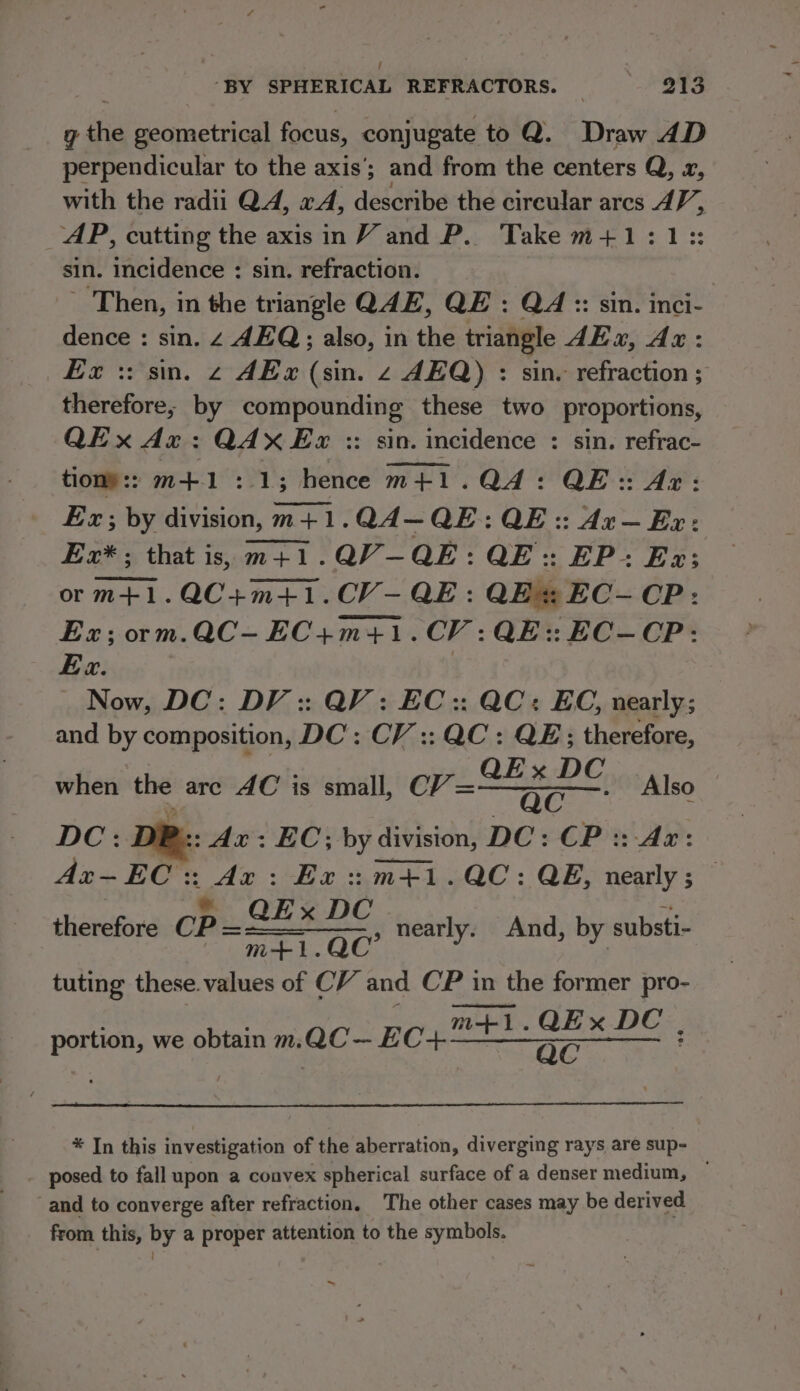 BY SPHERICAL REFRACTORS. 213
q the geometrical focus, conjugate to Q. Draw AD
perpendicular to the axis; and from the centers Q, x,
with the radii QA, xA, describe the circular arcs AV,
AP, cutting the axis in V and P. Take m+1 : 1 ::
sin. incidence : sin. refraction.
Then, in the triangle QAE, QE : QA :: sin. inci-
dence : sin. ∠ AEQ; also, in the triangle AEx, Ax :
Ex :: sin. ∠ AEx (sin. ∠ AEQ) : sin. refraction;
therefore, by compounding these two proportions,
QE × Ax : QA × Ex :: sin. incidence : sin. refrac-
tion :: m+1 : 1; hence m+1 . QA : QE :: Ax :
Ex; by division, m+1 . QA — QE : QE :: Ax — Ex :
Ex*; that is, m+1 . QV — QE : QE :: EP : Ex;
or m+1 . QC + m+1 . CV — QE : QE :: EC — CP :
Ex; or m . QC — EC + m+1 . CV : QE :: EC — CP :
Ex.
Now, DC : DV :: QV : EC :: QC : EC, nearly;
and by composition, DC : CV :: QC : QE; therefore,
when the arc AC is small, CV = QE × DC / QC. Also
DC : DP :: Ax : EC; by division, DC : CP :: Ax :
Ax — EC :: Ax : Ex :: m+1 . QC : QE, nearly;
therefore CP = QE × DC / m+1 . QC, nearly. And, by substi-
tuting these values of CV and CP in the former pro-
portion, we obtain m . QC — EC + m+1 . QE × DC / QC :
* In this investigation of the aberration, diverging rays are sup-
posed to fall upon a convex spherical surface of a denser medium,
and to converge after refraction. The other cases may be derived
from this, by a proper attention to the symbols.